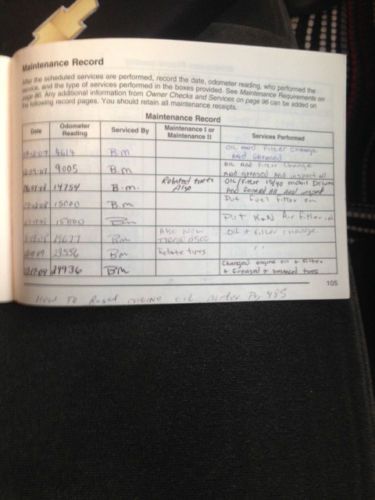 Maintenance Record
After the scheduled services are performed, record the date, odometer reading, who performed the
service, and the type of services performed in the boxes provided. See Maintenance Requirements on
page 86. Any additional information from Owner Checks and Services on page 96 can be added on
the following record pages. You should retain all maintenance receipts.
Maintenance Record
Date Odometer Reading Serviced By Maintenance I or Maintenance II Services Performed
4614 B.m OIL and Filter Change and Greased
9005 B.m OIL and Filter Change and greased and inspect all
14754 B.m. Rotated tires Also OIL/Filter
15000 B.m Put Fuel Filter on
15000 B.m Put K&N Air Filter on
19677 B.m Also New OIL + Filter Change
24556 B.m Rotate tires " "
29936 B.m Changed engine oil + Filter + Greased + balanced tires
How To Reset engine oil
105